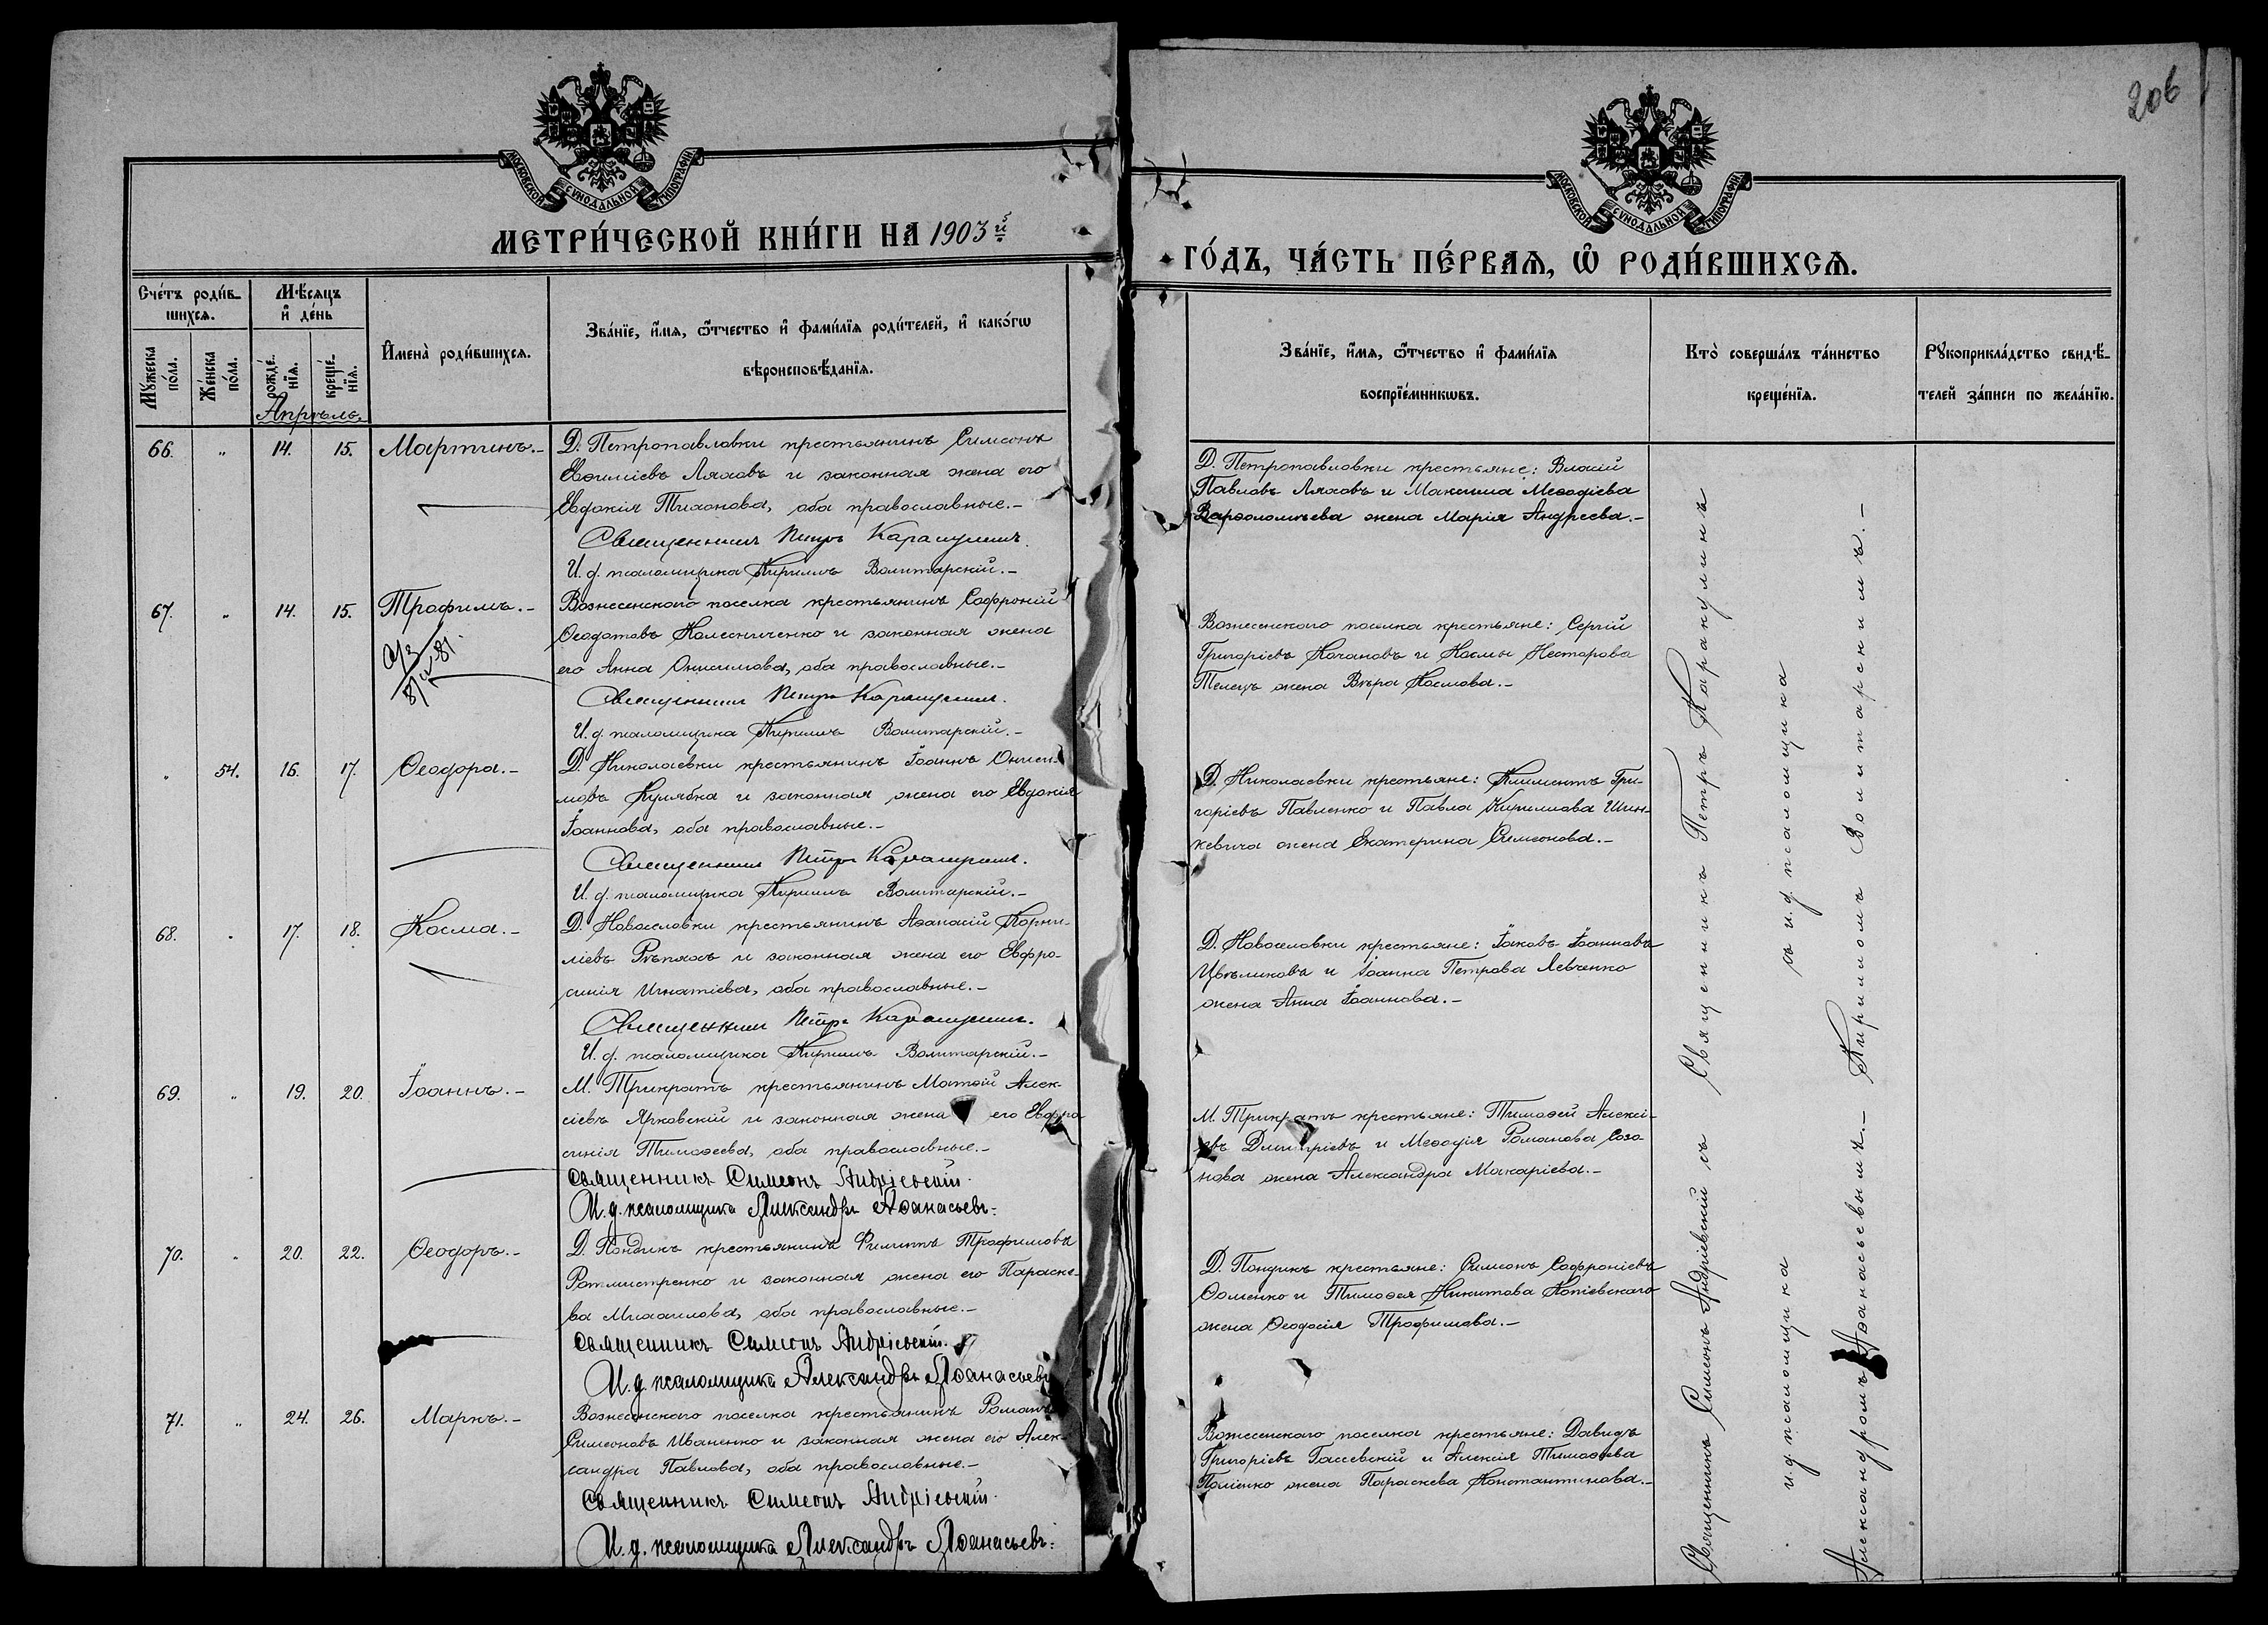 206
МОСКОВСКОЙ СУНОДАЛЬНОЙ ТИПОГРАФІИ
МОСКОВСКОЙ СУНОДАЛЬНОЙ ТИПОГРАФІИ
МЕТРИ́ЧЕСКОЙ КНИ́ГИ НА 1903й
ГО́ДЪ, ЧА́СТЬ ПЕ́РВАЯ, Ѡ РОДИ́ВШИХСЯ.
Сче́тъ роди́в-
шихся.
Му́жеска по́ла.
Же́нска по́ла.
Мѣ́сяцъ
и де́нь
рожде́-
нїя.
креще́-
нїя.
Имена̀ роди́вшихся.
Зва́нїе, и́мя, ѻ́тчество и фами́лїя роди́телей, и како́гѡ
вѣроисповѣ́данїя.
Зва́нїе, и́мя, ѻ́тчество и фами́лїя
воспрїе́мникѡвъ.
Кто̀ соверша́лъ та́инство
креще́нїя.
Рукоприкла́дство свидѣ́-
телей за́писи по жела́нїю.
Апрѣль.
66. " 14. 15. Мартинъ.-
Д. Петропавловки крестьянинъ Симеонъ
Евѳиміевъ Ляховъ и законная жена его
Евдокія Тихонова, оба православные.-
Священникъ Петръ Каракулинъ.
И. д. псаломщика Кириллъ Волитарскій.-
Д. Петропавловки крестьяне: Власій
Павловъ Ляховъ и Максима Меѳодіева
Варѳоломѣева жена Марія Андреева.-
67. " 14. 15. Трофимъ.-
Вознесенскаго поселка крестьянинъ Софроній
Ѳеодотовъ Колесниченко и законная жена
его Анна Онисимова, оба православные.-
Священникъ Петръ Каракулинъ.
И. д. псаломщика Кириллъ Волитарскій.-
Вознесенскаго поселка крестьяне: Сергій
Григоріевъ Кочановъ и Космы Несторова
Телецъ жена Вѣра Космова.-
" 54. 16. 17. Ѳеодора.-
Д. Николаевки крестьянинъ Іоаннъ Ониси-
мовъ Кулябка и законная жена его Евдокія
Іоаннова, оба православные.-
Священникъ Петръ Каракулинъ.
И. д. псаломщика Кириллъ Волитарскій.-
Д. Николаевки крестьяне: Климентъ Гри-
горіевъ Павленко и Павла Кириллова Шин-
кевича жена Екатерина Симеонова.-
68. " 17. 18. Косма.-
Д. Новоселовки крестьянинъ Аѳанасій Корни-
ліевъ Рѣпяхъ и законная жена его Евфро-
синія Игнатіева, оба православные.-
Священникъ Петръ Каракулинъ.
И. д. псаломщика Кириллъ Волитарскій.-
Д. Новоселовки крестьяне: Іаковъ Іоанновъ
Цвѣликовъ и Іоанна Петрова Левченко
жена Анна Іоаннова.-
69. " 19. 20. Іоаннъ.-
М. Трикратъ крестьянинъ Матѳій Алек-
сіевъ Ярковскій и законная жена его Евфро
синія Тимоѳеева, оба православные.-
Священникъ Симеонъ Андріевскій.
И. д. псаломщика Александръ Аѳанасьевъ.
М. Трикратъ крестьяне: Тимоѳей Алексі-
евъ Димитріевъ и Меѳодія Романова Созо-
нова жена Александра Макаріева.-
70. " 20. 22. Ѳеодоръ.-
Д. Пондикъ крестьянинъ Филиппъ Трофимовъ
Ротмистренко и законная жена его Параске-
ва Михаилова, оба православные.-
Священникъ Симеонъ Андріевскій.
И. д. псаломщика Александръ Аѳанасьевъ
Д. Пондикъ крестьяне: Симеонъ Софроніевъ
Ѳоменко и Тимоѳея Никитова Копіевскаго
жена Ѳеодосія Трофимова.-
71. " 24. 26. Маркъ.-
Вознесенскаго поселка крестьянинъ Романъ
Симеоновъ Иваненко и законная жена его Алек-
сандра Павлова, оба православные.-
Священникъ Симеонъ Андріевскій.
И. д. псаломщика Александръ Аѳанасьевъ.
Вознесенскаго поселка крестьяне: Давидъ
Григоріевъ Гассевскій и Алексія Тимоѳеева
Поліенко жена Параскева Константинова.-
Священникъ Петръ Каракулинъ
съ и. д. псаломщика
Кирилломъ Волитарскимъ.-
Священникъ Симеонъ Андріевскій съ
и. д. псаломщика
Александромъ Аѳанасьевымъ.-